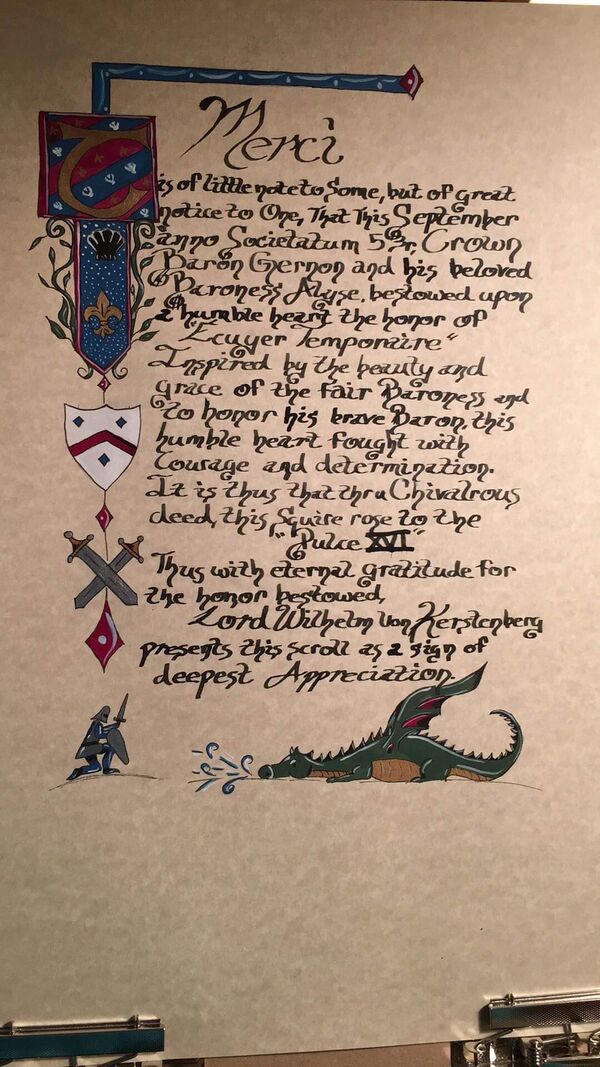 Merci
is of little note to Some, but of great
notice to One, That This September
anno Societatum 53r, Crown
Baron Gernon and his beloved
Baroness Alyse, bestowed upon
a humble heart the honor of
"Ecuyer Temporaire"
Inspired by the beauty and
grace of the fair Baroness and
to honor his brave Baron, this
humble heart fought with
Courage and determination.
It is thus that thru Chivalrous
deed, this Squire rose to the
"Pulce XVI"
Thus with eternal gratitude for
the honor bestowed,
Lord Wilhelm Von Kerstenberg
presents this scroll as a sign of
deepest Appreciation.